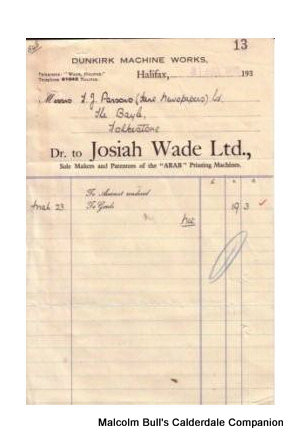 13
DUNKIRK MACHINE WORKS,
Telegrams: "WADE, HALIFAX."
Telephone
Halifax, 193
Messrs F. J. Parsons (Kent Newspapers) Ld.
The Bayle,
Folkestone
Dr. to Josiah Wade Ltd.,
Sole Makers and Patentees of the "ARAB" Printing Machines.
£ s d
To Account rendered
23 To Goods 19 3
Malcolm Bull's Calderdale Companion